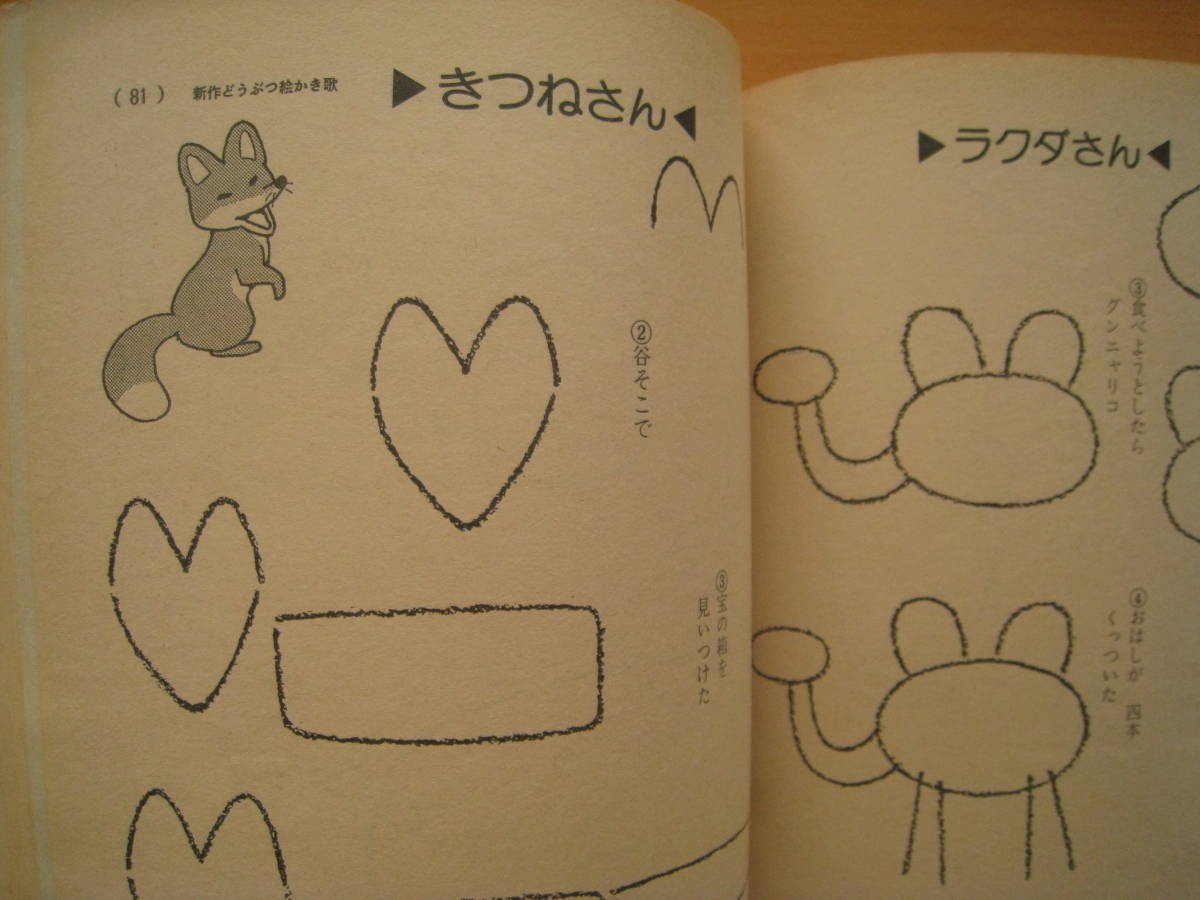 （81） 新作どうぶつ絵かき歌
▶きつねさん◀
②谷そこで
③宝の箱を
見いつけた
▶ラクダさん◀
③食べようとしたら
グンニャリコ
④おはしが 四本
くっついた